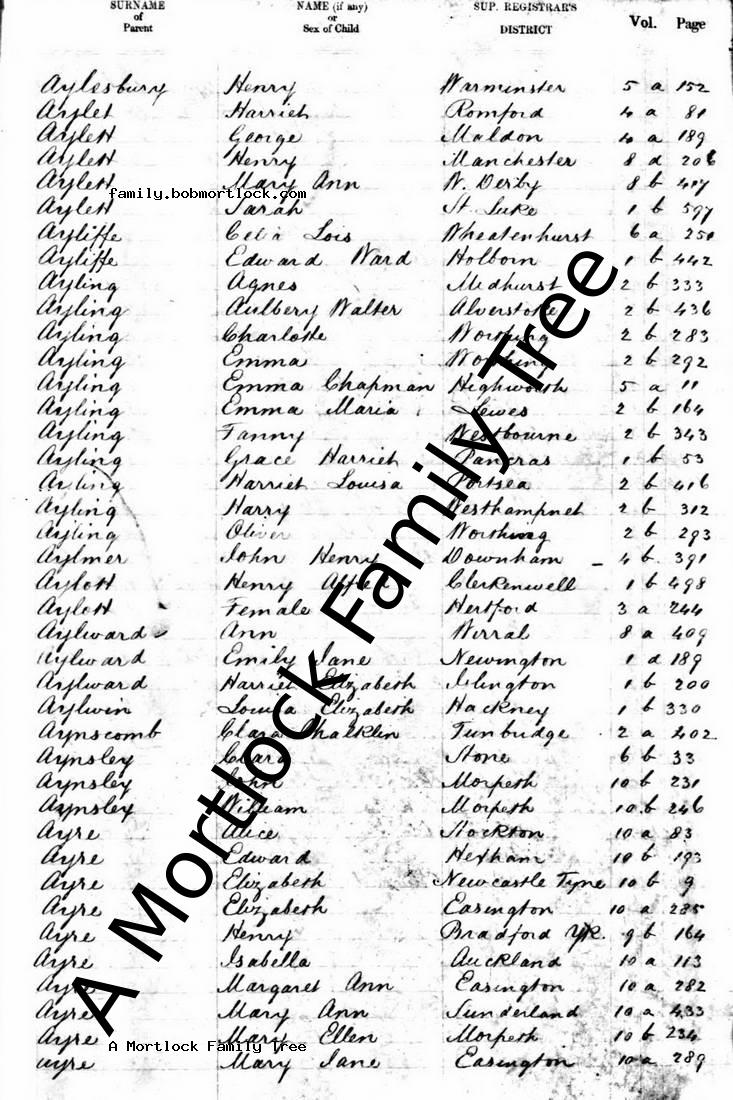 SURNAME of Parent NAME (if any) or Sex of Child SUP. REGISTRAR'S DISTRICT Vol. Page
Aylesbury Henry Warminster 5 a 152
Aylet Harriet Romford 4 a 81
Aylett George Maldon 4 a 189
Aylett Henry Manchester 8 d 206
Aylett Mary Ann W. Derby 8 b 417
family.bobmortlock.com
Aylett Sarah St Luke 1 b 597
Ayliffe Celia Lois Wheatenhurst 6 a 251
Ayliffe Edward Ward Holborn 1 b 442
Ayling Agnes Midhurst 2 b 333
Ayling Aulbery Walter Alverstoke 2 b 436
Ayling Charlotte Worthing 2 b 283
Ayling Emma Worthing 2 b 292
Ayling Emma Chapman Highworth 5 a 11
Ayling Emma Maria Lewes 2 b 164
Ayling Fanny Westbourne 2 b 343
Ayling Grace Harriet Pancras 1 b 53
Ayling Harriet Louisa Portsea 2 b 416
Ayling Harry Westhampnet 2 b 312
Ayling Oliver Worthing 2 b 293
Aylmer John Henry Downham 4 b 391
Aylott Henry Alfred Clerkenwell 1 b 498
Aylott Female Hertford 3 a 244
Aylward Ann Wirral 8 a 409
Aylward Emily Jane Newington 1 d 189
Aylward Harriet Elizabeth Islington 1 b 200
Aylwin Louisa Elizabeth Hackney 1 b 330
Aynscomb Clara Chalklen Tunbridge 2 a 402
Aynsley Clara Stone 6 b 33
Aynsley John Morpeth 10 b 231
Aynsley William Morpeth 10 b 246
Ayre Alice Stockton 10 a 83
Ayre Edward Hexham 10 b 193
Ayre Elizabeth Newcastle Tyne 10 b 9
Ayre Elizabeth Easington 10 a 285
Ayre Henry Bradford Yk. 9 b 164
Ayre Isabella Auckland 10 a 113
Ayre Margaret Ann Easington 10 a 282
Ayre Mary Ann Sunderland 10 a 433
Ayre Mary Ellen Morpeth 10 b 234
A Mortlock Family Tree
Ayre Mary Jane Easington 10 a 289
A Mortlock Family Tree